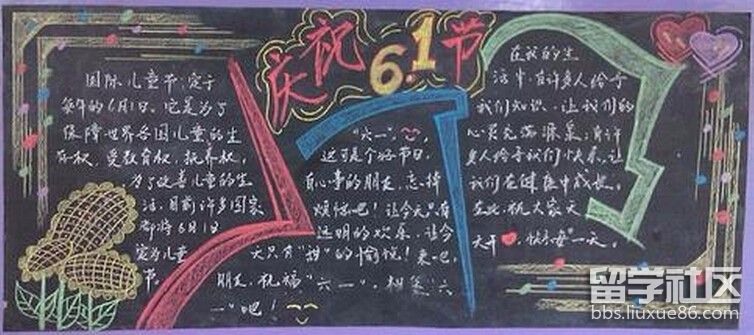 庆祝6.1节
国际儿童节,定于
每年的6月1日。它是为了
保障世界各国儿童的生
存权、受教育权、抚养权,
为了改善儿童的生
活,目前许多国家
都将6月1日
定为儿童
节。
"六一",
这可是个好节日,
有心事的朋友,忘掉
烦恼吧!让今天只有
透明的欢乐,让今
天只有"甜"的愉悦!来吧,
朋友,祝福"六一",相聚"六
一"吧!
在我的生
活中有许多人给予
我们知识,让我们的
心灵充满
多人给予我们快乐,让
我们在健康中成长。
在此,祝大家天
天开❤,快乐每一天。
留学社区
bbs.liuxue86.com